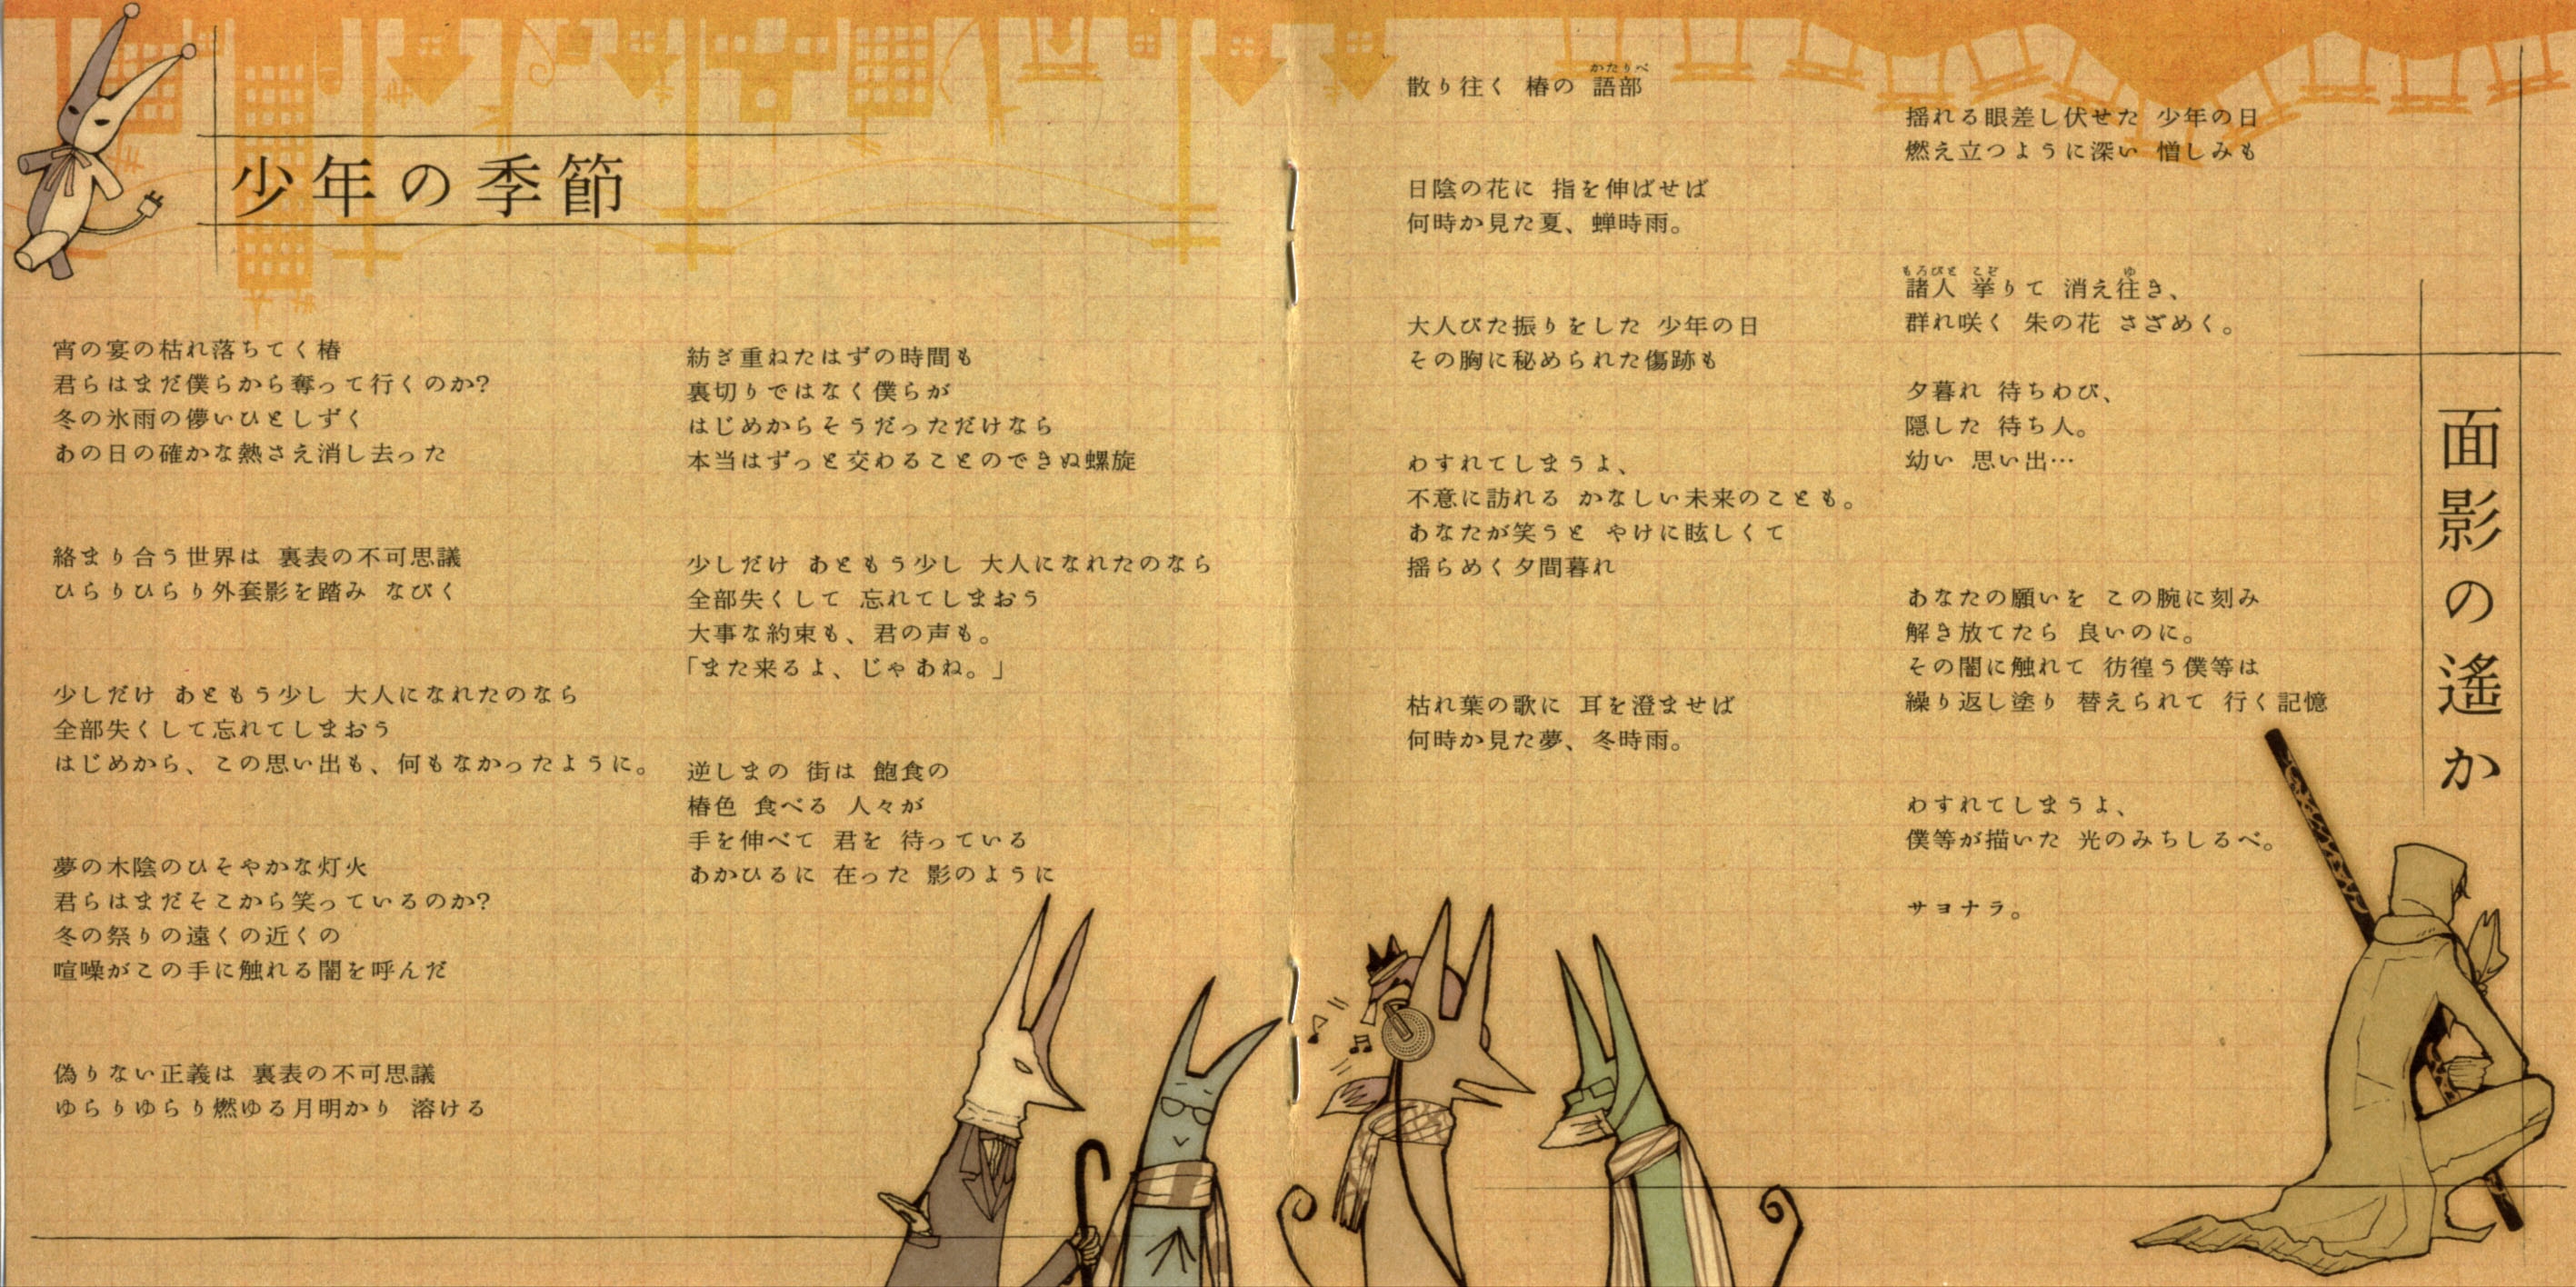 少年の季節
宵の宴の枯れ落ちてく椿
君らはまだ僕らから奪って行くのか?
冬の氷雨の儚いひとしずく
あの日の確かな熱さえ消し去った
絡まり合う世界は 裏表の不可思議
ひらりひらり外套影を踏み なびく
少しだけ あともう少し 大人になれたのなら
全部失くして忘れてしまおう
はじめから、この思い出も、何もなかったように。
夢の木陰のひそやかな灯火
君らはまだそこから笑っているのか?
冬の祭りの遠くの近くの
喧噪がこの手に触れる闇を呼んだ
偽りない正義は 裏表の不可思議
ゆらりゆらり燃ゆる月明かり 溶ける
紡ぎ重ねたはずの時間も
裏切りではなく僕らが
はじめからそうだっただけなら
本当はずっと交わることのできぬ螺旋
少しだけ あともう少し 大人になれたのなら
全部失くして 忘れてしまおう
大事な約束も、君の声も。
「また来るよ、じゃあね。」
逆しまの 街は 飽食の
椿色 食べる 人々が
手を伸べて 君を 待っている
あかひるに 在った 影のように
面影の遙か
かたりべ
散り往く 椿の 語部
日陰の花に 指を伸ばせば
何時か見た夏、蝉時雨。
大人びた振りをした 少年の日
その胸に秘められた傷跡も
わすれてしまうよ、
不意に訪れる かなしい未来のことも。
あなたが笑うと やけに眩しくて
揺らめく夕間暮れ
枯れ葉の歌に 耳を澄ませば
何時か見た夢、冬時雨。
揺れる眼差し伏せた 少年の日
燃え立つように深い 憎しみも
もろびと こぞ ゆ
諸人 挙りて 消え往き、
群れ咲く 朱の花 さざめく。
夕暮れ 待ちわび、
隠した 待ち人。
幼い 思い出…
あなたの願いを この腕に刻み
解き放てたら 良いのに。
その闇に触れて 彷徨う僕等は
繰り返し塗り 替えられて 行く記憶
わすれてしまうよ、
僕等が描いた 光のみちしるべ。
サヨナラ。